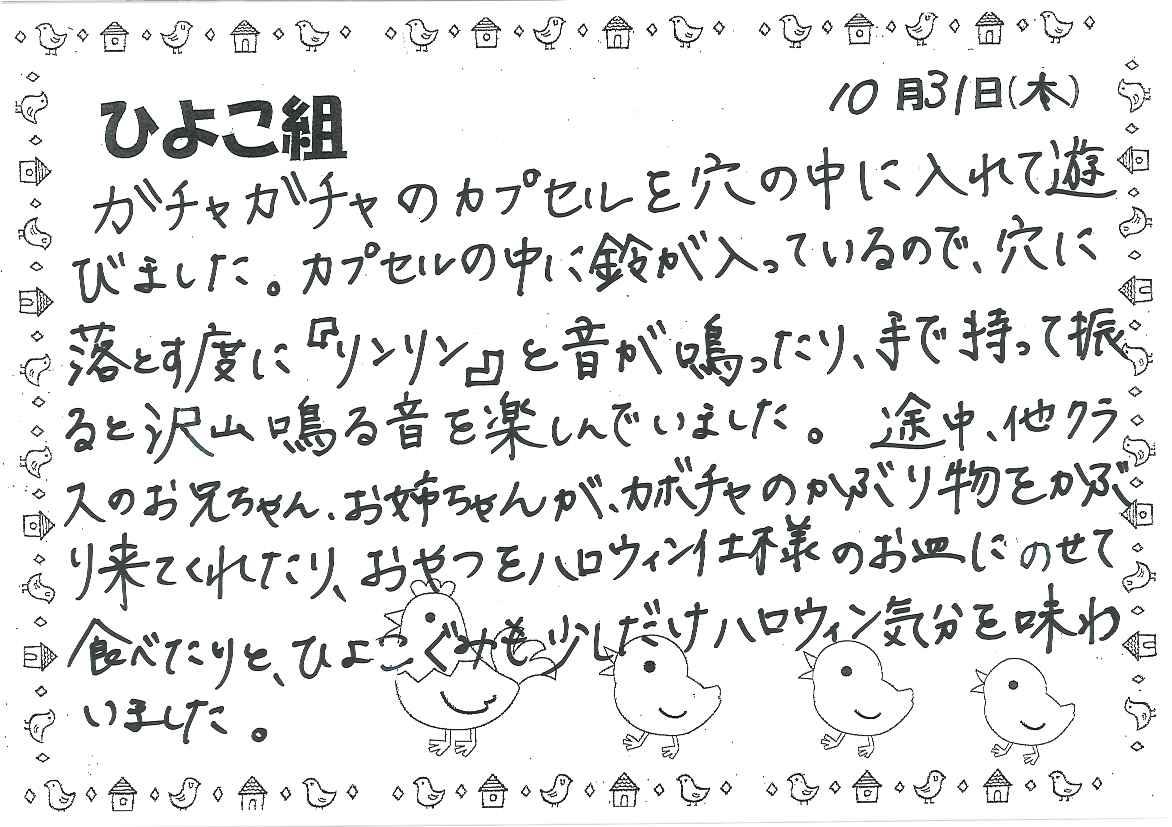 10月31日(木)
ひよこ組
ガチャガチャのカプセルを穴の中に入れて遊
びました。カプセルの中に鈴が入っているので、穴に
落とす度に『リンリン』と音が鳴ったり、手で持って振
ると沢山鳴る音を楽しんでいました。 途中、他クラ
スのお兄ちゃん、お姉ちゃんが、カボチャのかぶり物をかぶ
り来てくれたり、おやつをハロウィン仕様のお皿にのせて
食べたりと、ひよこぐみも少しだけハロウィン気分を味わ
いました。